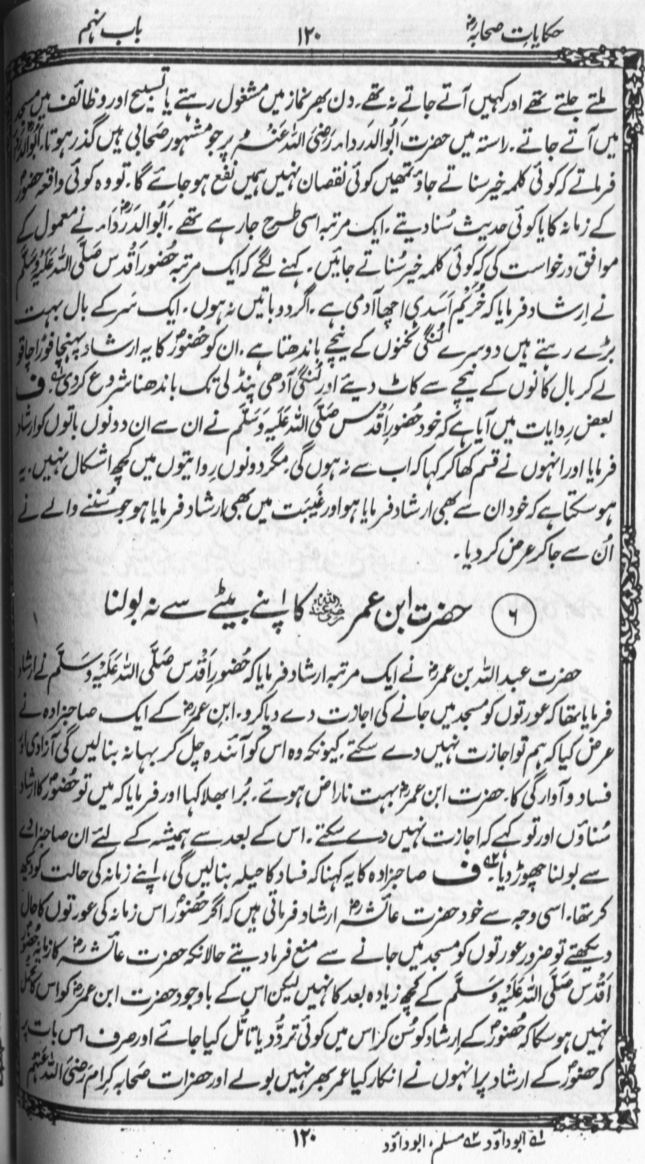 حکایاتِ صحابہؓ ۱۲۰ باب نہم
ملتے جلتے تھے اور کہیں آتے جاتے نہ تھے۔ دن بھر نماز میں مشغول رہتے یا تسبیح اور وظائف میں مسجد
میں آتے جاتے۔ راستہ میں حضرت ابُوالدَردَاء رَضِیَ اللہُ عَنہُ پر جو مشہور صحابی ہیں گذر ہوتا۔ ابُوالدَّردَاءؓ
فرماتے کہ کوئی کلمہ خیر سناتے جاؤ تمھیں کوئی نقصان نہیں ہمیں نفع ہو جائے گا۔ تو وہ کوئی واقعہ حضورؐ
کے زمانہ کا یا کوئی حدیث سُنا دیتے۔ ایک مرتبہ اسی طرح جا رہے تھے۔ ابُوالدَردَاءؓ نے معمول کے
موافق درخواست کی کہ کوئی کلمہ خیر سُناتے جائیں۔ کہنے لگے کہ ایک مرتبہ حُضورِ اَقدس صَلَّی اللہُ عَلَیْہِ وَسَلَّم
نے ارشاد فرمایا کہ خُرَیم اَسَدی اچھا آدمی ہے۔ اگر دو باتیں نہ ہوں۔ ایک سَر کے بال بہت
بڑے رہتے ہیں دوسرے لُنگی ٹخنوں کے نیچے باندھتا ہے۔ ان کو حضورؐ کا یہ ارشاد پہنچا فوراً چاقو
لے کر بال کانوں کے نیچے سے کاٹ دیئے اور لُنگی آدھی پنڈلی تک باندھنا شروع کر دی۔ ف
بعض روایات میں آیا ہے کہ خود حضورِ اَقدس صَلَّی اللہُ عَلَیْہِ وَسَلَّم نے ان سے ان دونوں باتوں کو ارشاد
فرمایا اور انہوں نے قسم کھا کر کہا کہ اب سے نہ ہوں گی مگر دونوں روایتوں میں کچھ اشکال نہیں۔ یہ
ہو سکتا ہے کہ خود ان سے بھی ارشاد فرمایا ہو اور غَیبَت میں بھی ارشاد فرمایا ہو جو سُننے والے نے
اُن سے جا کر عرض کر دیا۔
۶ حضرت ابنِ عمر رضی اللہ عنہ کا اپنے بیٹے سے نہ بولنا
حضرت عبداللہ بن عمرؓ نے ایک مرتبہ ارشاد فرمایا کہ حضورِ اَقدس صَلَّی اللہُ عَلَیْہِ وَسَلَّم نے ارشاد
فرمایا تھا کہ عورتوں کو مسجد میں جانے کی اجازت دے دیا کرو۔ ابنِ عمرؓ کے ایک صاحبزادہ نے
عرض کیا کہ ہم تو اجازت نہیں دے سکتے کیونکہ وہ اس کو آئندہ چل کر بہانہ بنا لیں گی آزادی اور
فساد و آوارگی کا۔ حضرت ابنِ عمرؓ بہت ناراض ہوئے۔ بُرا بھلا کہا اور فرمایا کہ میں تو حضورؐ کا ارشاد
سُناؤں اور تو کہے کہ اجازت نہیں دے سکتے۔ اس کے بعد سے ہمیشہ کے لئے ان صاحبزادے
سے بولنا چھوڑ دیا۔ ف صاحبزادہ کا یہ کہنا کہ فساد کا حیلہ بنا لیں گی، اپنے زمانہ کی حالت کو دیکھ
کر تھا۔ اسی وجہ سے خود حضرت عائشہؓ ارشاد فرماتی ہیں کہ اگر حضورؐ اس زمانہ کی عورتوں کا حال
دیکھتے تو ضرور عورتوں کو مسجد میں جانے سے منع فرما دیتے حالانکہ حضرت عائشہؓ کا زمانہ حضورِ
اَقدس صَلَّی اللہُ عَلَیْہِ وَسَلَّم کے کچھ زیادہ بعد کا نہیں لیکن اس کے باوجود حضرت ابنِ عمرؓ کو اس کا تحمّل
نہیں ہو سکا کہ حضورؐ کے ارشاد کو سُن کر اس میں کوئی تردُّد یا تامُّل کیا جائے اور صرف اس بات پر
کہ حضورؐ کے ارشاد پر انہوں نے انکار کیا عمر بھر نہیں بولے اور حضرات صحابہ کرام رَضِیَ اللہُ عَنہُم
؎۱ ابوداؤد ؎۲ مسلم، ابوداؤد ۱۲۰